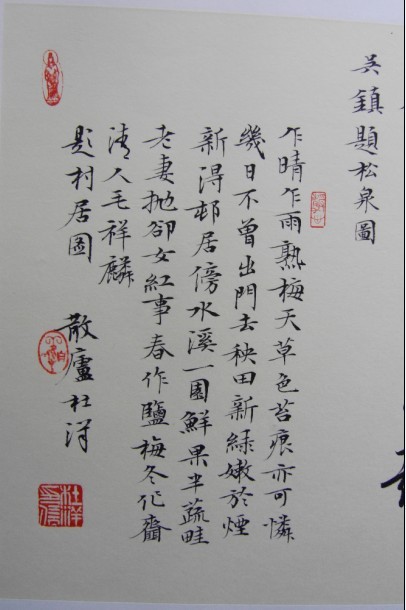 吳鎮題松泉圖
乍晴乍雨熟梅天草色苔痕亦可憐
幾日不曾出門去秧田新綠嫩於煙
新得邨居傍水溪一園鮮果半蔬畦
老妻拋卻女紅事春作鹽梅冬作齏
清人毛祥麟
題村居圖
散廬杜洋
杜洋